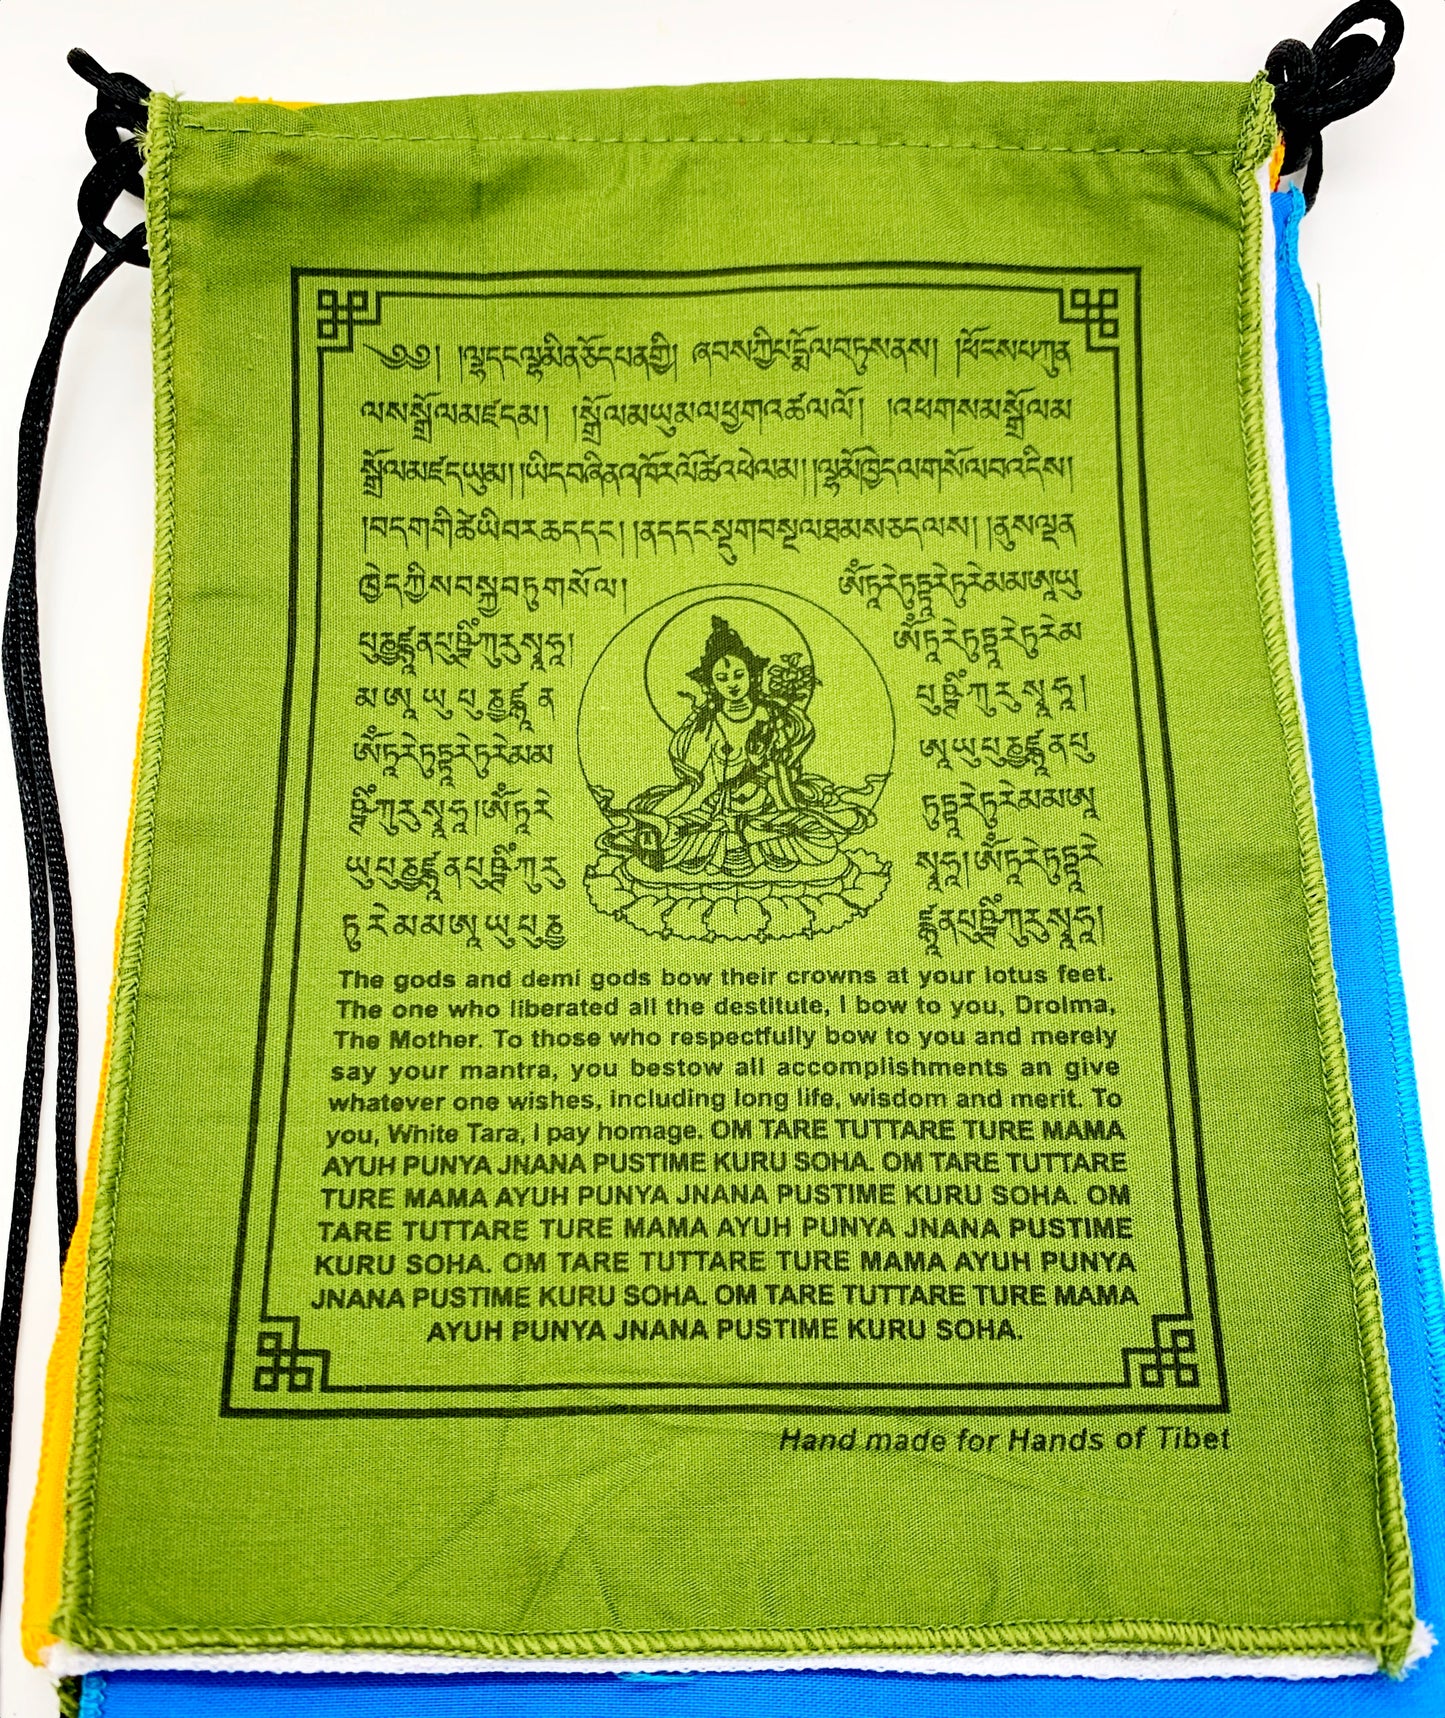 ༄༅། །ལྷ་དང་ལྷ་མིན་ཅོད་པན་གྱི། ཞབས་ཀྱི་པདྨོ་ལ་བཏུས་ནས། །ཕོངས་པ་ཀུན
ལས་སྒྲོལ་མཛད་མ། །སྒྲོལ་མ་ཡུམ་ལ་ཕྱག་འཚལ་ལོ། །འཕགས་མ་སྒྲོལ་མ
སྒྲོལ་མཛད་ཡུམ། །ཡིད་བཞིན་འཁོར་ལོ་ཚེ་འཕེལ་མ། །ལྷ་མོ་ཁྱེད་ལ་གསོལ་བ་འདེབས།
།བདག་གི་ཚེ་ཡི་བར་ཆད་དང་། །ནད་དང་སྡུག་བསྔལ་ཐམས་ཅད་ལས། །ནུས་ལྡན
ཁྱེད་ཀྱིས་བསྐྱབ་ཏུ་གསོལ། ༀ་ཏཱ་རེ་ཏུཏྟཱ་རེ་ཏུ་རེ་མ་མ་ཨཱ་ཡུ
པུཎྱཛྙཱ་ན་པུཥྚིཾ་ཀུ་རུ་སྭཱ་ཧཱ། ༀ་ཏཱ་རེ་ཏུཏྟཱ་རེ་ཏུ་རེ་མ
མ་ཨཱ་ཡུ་པུཎྱཛྙཱ་ན པུཥྚིཾ་ཀུ་རུ་སྭཱ་ཧཱ།
ༀ་ཏཱ་རེ་ཏུཏྟཱ་རེ་ཏུ་རེ་མ་མ ཨཱ་ཡུ་པུཎྱཛྙཱ་ན་པུ
ཥྚིཾ་ཀུ་རུ་སྭཱ་ཧཱ། ༀ་ཏཱ་རེ ཏུཏྟཱ་རེ་ཏུ་རེ་མ་མ་ཨཱ
ཡུ་པུཎྱཛྙཱ་ན་པུཥྚིཾ་ཀུ་རུ སྭཱ་ཧཱ། ༀ་ཏཱ་རེ་ཏུཏྟཱ་རེ
ཏུ་རེ་མ་མ་ཨཱ་ཡུ་པུཎྱ ཛྙཱ་ན་པུཥྚིཾ་ཀུ་རུ་སྭཱ་ཧཱ།
The gods and demi gods bow their crowns at your lotus feet.
The one who liberated all the destitute, I bow to you, Drolma,
The Mother. To those who respectfully bow to you and merely
say your mantra, you bestow all accomplishments an give
whatever one wishes, including long life, wisdom and merit. To
you, White Tara, I pay homage. OM TARE TUTTARE TURE MAMA
AYUH PUNYA JNANA PUSTIME KURU SOHA. OM TARE TUTTARE
TURE MAMA AYUH PUNYA JNANA PUSTIME KURU SOHA. OM
TARE TUTTARE TURE MAMA AYUH PUNYA JNANA PUSTIME
KURU SOHA. OM TARE TUTTARE TURE MAMA AYUH PUNYA
JNANA PUSTIME KURU SOHA. OM TARE TUTTARE TURE MAMA
AYUH PUNYA JNANA PUSTIME KURU SOHA.
Hand made for Hands of Tibet